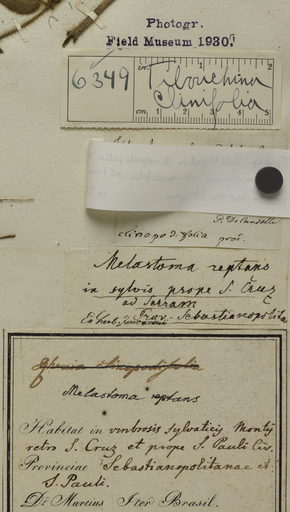 Photogr.
Field Museum 1930.
6349
in. 1 2
Tibouchina
Clinifolia
cm. 1 2 3 4 5
P. Decandolle
clinopodifolia prod.
Melastoma reptans
in sylvis prope S. Cruz
ad Serram
Prov. Sebastianopolita
Melastoma reptans
Habitat in umbrosis sylvaticis Montij
retro S. Cruz et prope S. Pauli Civ.
Provinciae Sebastianopolitanae et
S. Pauli.
Dr. Martius Iter Brasil.